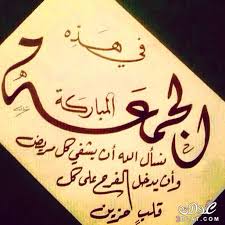 في هذه
الجمعة
المباركة
نسأل الله أن يشفي كل مريض
وأن يدخل الفرح على كل
قلب حزين